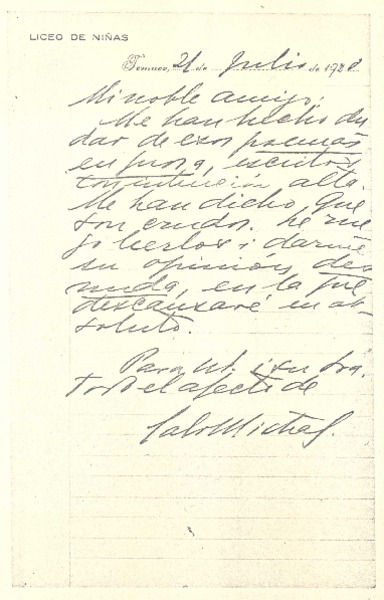 LICEO DE NIÑAS
Temuco, 21 de Julio de 1920
Mi noble amigo:
Me han hecho du
dar de esos poemas
en prosa, escritos
con intención alta.
Me han dicho que
son crudos. Le rue
go leerlos i darme
su opinión des
nuda, en la que
descansaré en ab-
soluto.
Para Ud. i su Sra.
todo el afecto de
Gab. Mistral.